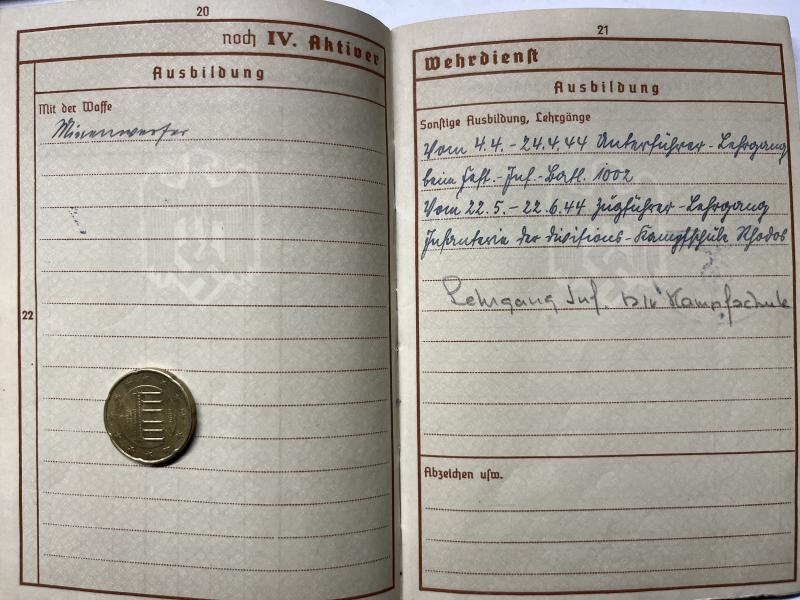 20
noch IV. Aktiver
Ausbildung
Mit der Waffe
Minenwerfer
22
21
Wehrdienst
Ausbildung
Sonstige Ausbildung, Lehrgänge
Vom 4.4. - 24.4.44 Unterführer-Lehrgang
beim Fest.-Inf.-Batl. 1002
Vom 22.5. - 22.6.44 Zugführer-Lehrgang
Infanterie der Divisions-Kampfschule Rhodos
Lehrgang Inf. Kampfschule
Abzeichen usw.